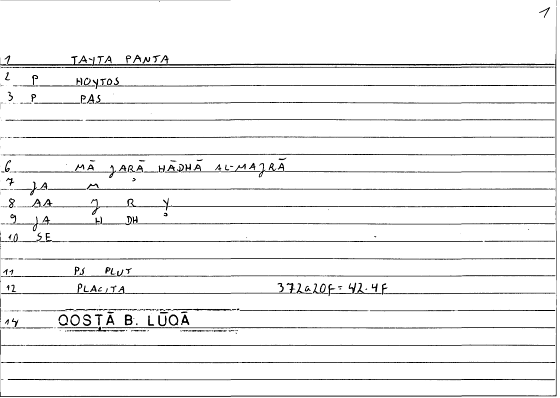 1
1 TAYTA PANTA
2 P HOYTOS
3 P PAS
6 MĀ ǦARĀ HĀDHĀ AL-MAǦRĀ
7 ǦA M
8 AA Ǧ R Y
9 ǦA H DH
10 SE
11 PS PLUT
12 PLACITA 372a20f = 42.4f
14 QOSṬĀ B. LŪQĀ